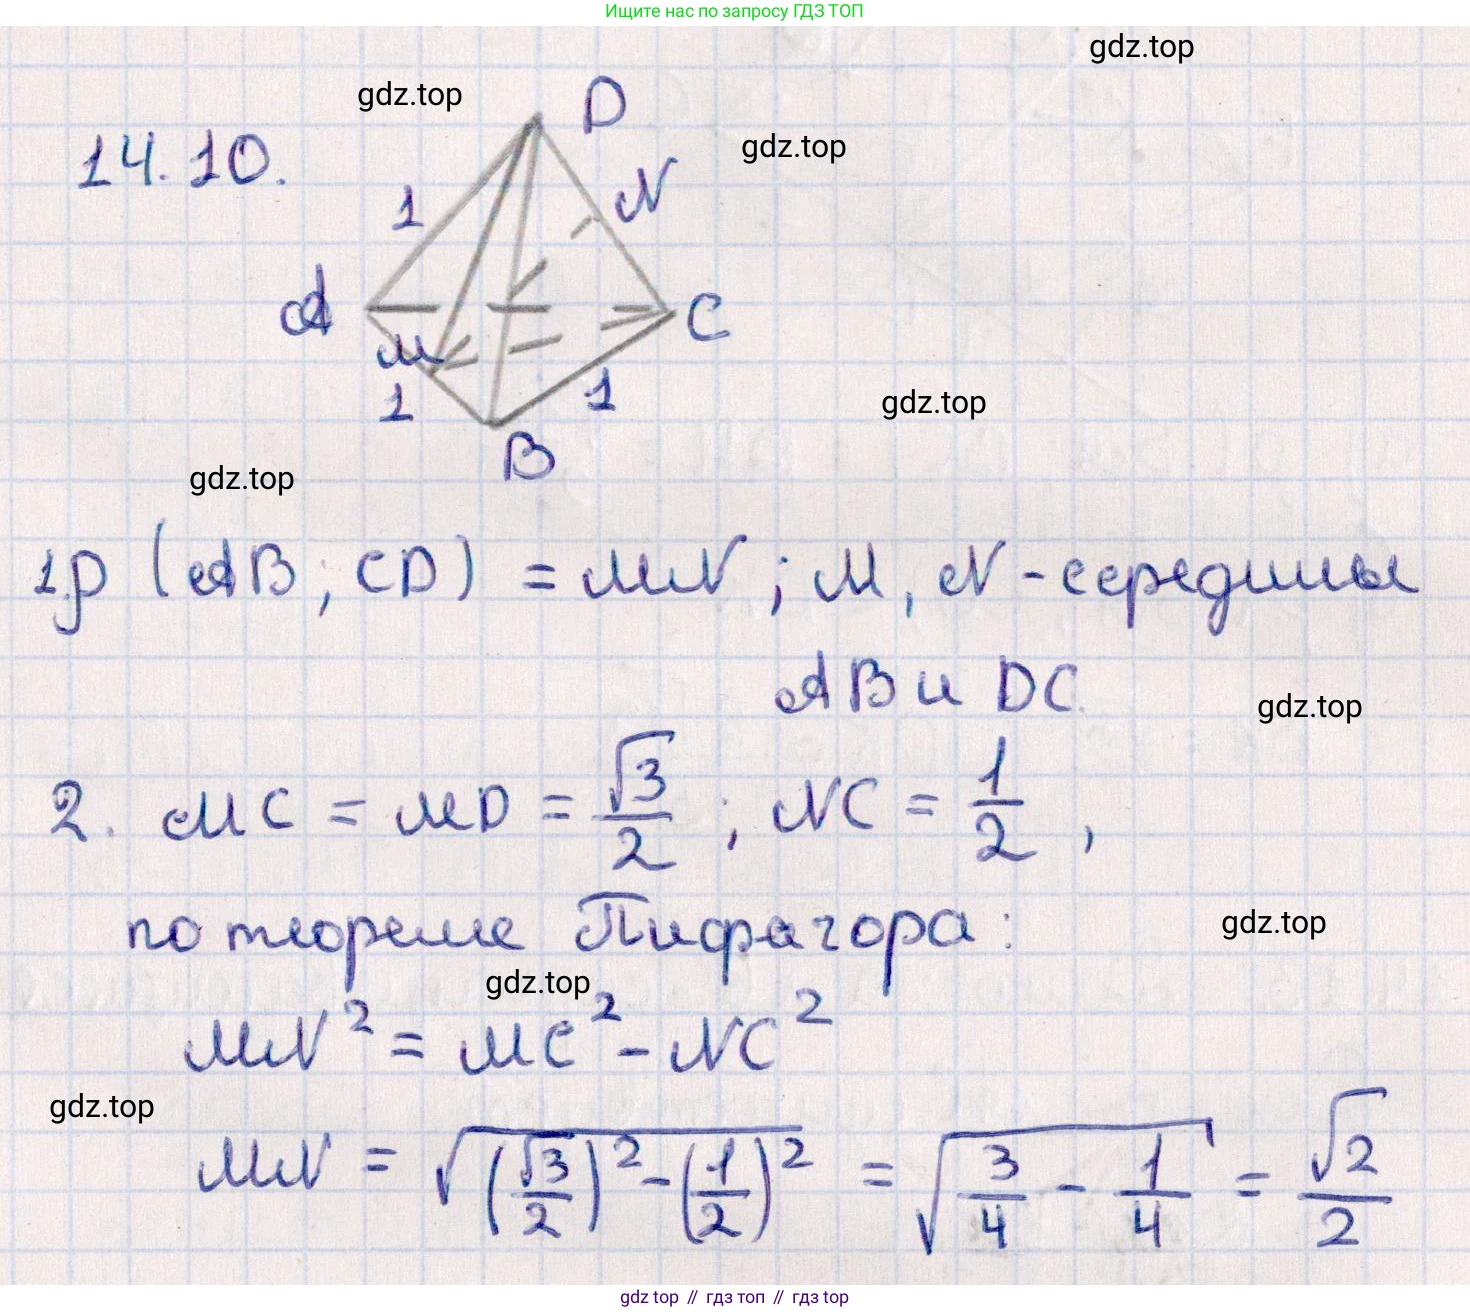 Ищите нас по запросу ГДЗ ТОП
gdz.top
gdz.top
D
14.10.
gdz.top
N
1
A
C
M
1
1
gdz.top
B
gdz.top
1. ρ (AB; CD) = MN; M, N - середины
AB и DC.
gdz.top
2. MC = MD = √3/2; NC = 1/2,
по теореме Пифагора:
gdz.top
gdz.top
MN² = MC² - NC²
gdz.top
MN = √((√3/2)² - (1/2)²) = √(3/4 - 1/4) = √2/2
gdz.top // гдз топ // гдз top